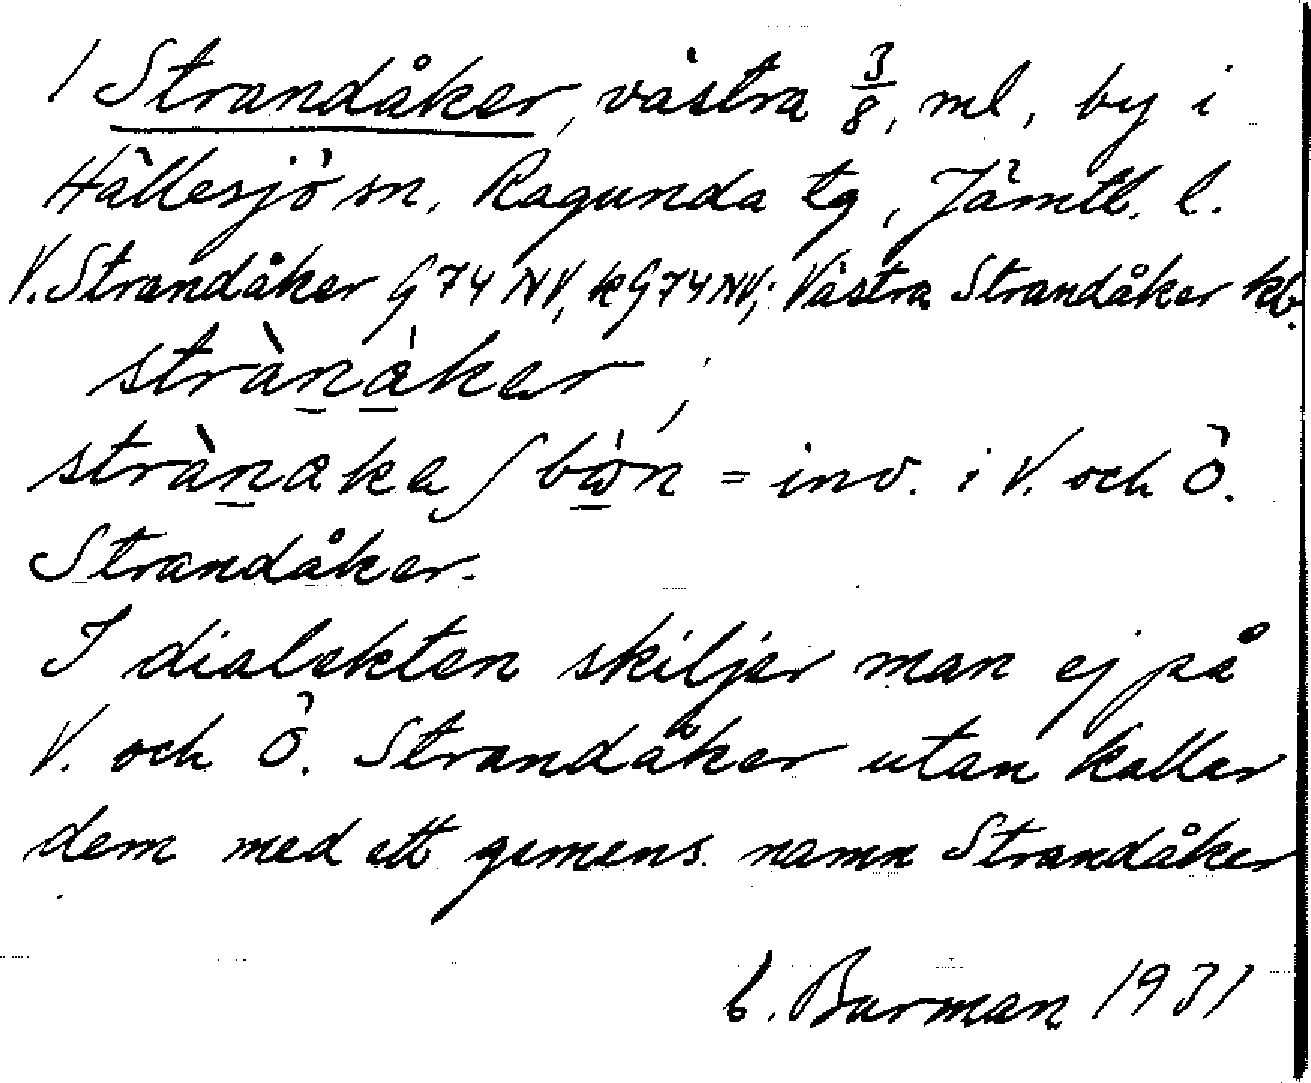 1 Strandåker, västra 3/8, ml, by i
Hällesjö sn, Ragunda tg, Jämtl. l.
V. Strandåker G74NV, kG74NV; Västra Strandåker kb.
strànåker,
strànaka bón = inv. i V. och Ö.
Strandåker.
I dialekten skiljer man ej på
V. och Ö. Strandåker utan kallar
dem med ett gemens. namn Strandåker
Burman 1931